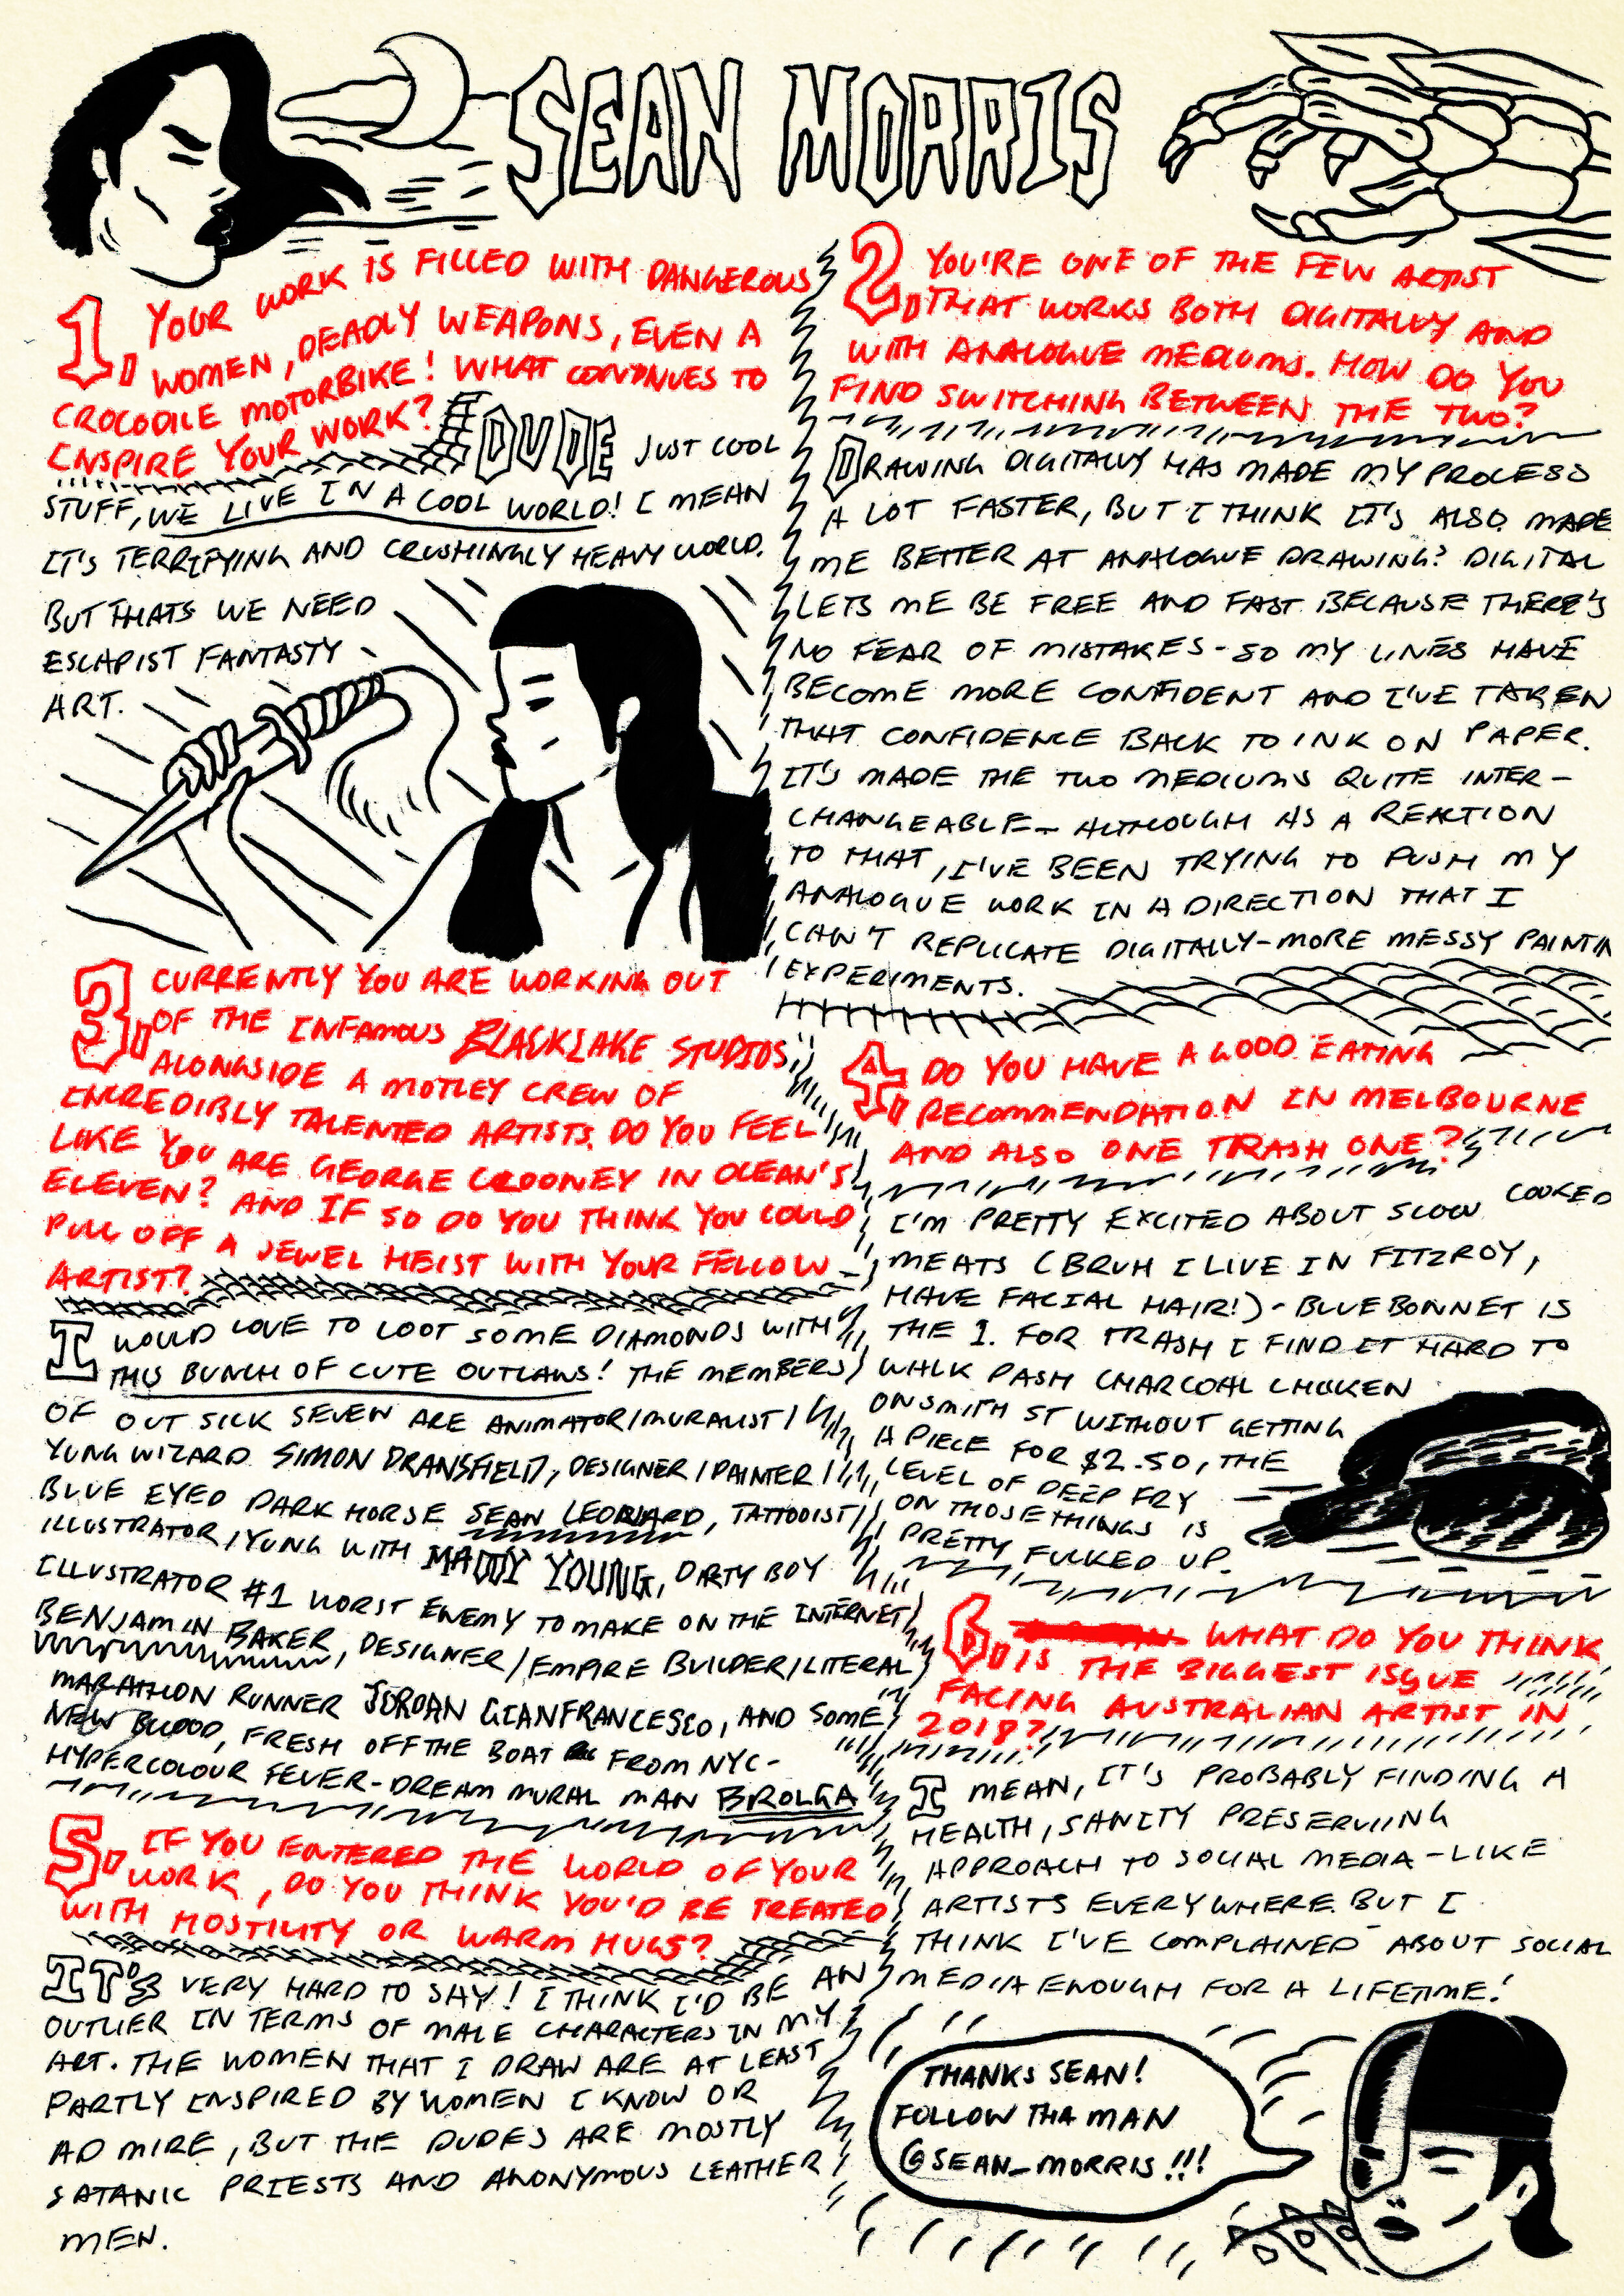 SEAN MORRIS
1. YOUR WORK IS FILLED WITH DANGEROUS
WOMEN, DEADLY WEAPONS, EVEN A
CROCODILE MOTORBIKE! WHAT CONTINUES TO
INSPIRE YOUR WORK?
DUDE JUST COOL
STUFF, WE LIVE IN A COOL WORLD! I MEAN
IT'S TERRIFYING AND CRUSHINGLY HEAVY WORLD.
BUT THATS WE NEED
ESCAPIST FANTASTY
ART.
2. YOU'RE ONE OF THE FEW ARTIST
THAT WORKS BOTH DIGITALLY AND
WITH ANALOGUE MEDIUMS. HOW DO YOU
FIND SWITCHING BETWEEN THE TWO?
DRAWING DIGITALLY HAS MADE MY PROCESS
A LOT FASTER, BUT I THINK IT'S ALSO MADE
ME BETTER AT ANALOGUE DRAWING? DIGITAL
LETS ME BE FREE AND FAST BECAUSE THERE'S
NO FEAR OF MISTAKES - SO MY LINES HAVE
BECOME MORE CONFIDENT AND I'VE TAKEN
THAT CONFIDENCE BACK TO INK ON PAPER.
IT'S MADE THE TWO MEDIUMS QUITE INTER-
CHANGEABLE - ALTHOUGH AS A REACTION
TO THAT, I'VE BEEN TRYING TO PUSH MY
ANALOGUE WORK IN A DIRECTION THAT I
CAN'T REPLICATE DIGITALLY - MORE MESSY PAINTIN
EXPERIMENTS.
3. CURRENTLY YOU ARE WORKING OUT
OF THE INFAMOUS BLACKLAKE STUDIOS
ALONGSIDE A MOTLEY CREW OF
INCREDIBLY TALENTED ARTISTS. DO YOU FEEL
LIKE YOU ARE GEORGE CLOONEY IN OCEAN'S
ELEVEN? AND IF SO DO YOU THINK YOU COULD
PULL OFF A JEWEL HEIST WITH YOUR FELLOW -
ARTIST?
I WOULD LOVE TO LOOT SOME DIAMONDS WITH
THIS BUNCH OF CUTE OUTLAWS! THE MEMBERS
OF OUT SICK SEVEN ARE ANIMATOR/MURALIST/
YUNG WIZARD SIMON DRANSFIELD, DESIGNER/PAINTER/
BLUE EYED DARK HORSE SEAN LEONARD, TATTOOIST/
ILLUSTRATOR/YUNG WITH MADDY YOUNG, DIRTY BOY
ILLUSTRATOR #1 WORST ENEMY TO MAKE ON THE INTERNET
BENJAMIN BAKER, DESIGNER/EMPIRE BUILDER/LITERAL
MARATHON RUNNER JORDAN GIANFRANCESCO, AND SOME
NEW BLOOD, FRESH OFF THE BOAT FROM NYC -
HYPERCOLOUR FEVER-DREAM MURAL MAN BROLGA
4. DO YOU HAVE A GOOD EATING
RECOMMENDATION IN MELBOURNE
AND ALSO ONE TRASH ONE?
I'M PRETTY EXCITED ABOUT SLOW COOKED
MEATS (BRUH I LIVE IN FITZROY,
HAVE FACIAL HAIR!) - BLUEBONNET IS
THE 1. FOR TRASH I FIND IT HARD TO
WALK PASH CHARCOAL CHICKEN
ON SMITH ST WITHOUT GETTING
A PIECE FOR $2.50, THE
LEVEL OF DEEP FRY
ON THOSE THINGS IS
PRETTY FUCKED UP.
5. IF YOU ENTERED THE WORLD OF YOUR
WORK, DO YOU THINK YOU'D BE TREATED
WITH HOSTILITY OR WARM HUGS?
IT'S VERY HARD TO SAY! I THINK I'D BE AN
OUTLIER IN TERMS OF MALE CHARACTERS IN MY
ART. THE WOMEN THAT I DRAW ARE AT LEAST
PARTLY INSPIRED BY WOMEN I KNOW OR
ADMIRE, BUT THE DUDES ARE MOSTLY
SATANIC PRIESTS AND ANONYMOUS LEATHER
MEN.
6. WHAT DO YOU THINK
IS THE BIGGEST ISSUE
FACING AUSTRALIAN ARTIST IN
2018?
I MEAN, IT'S PROBABLY FINDING A
HEALTH, SANITY PRESERVIING
APPROACH TO SOCIAL MEDIA - LIKE
ARTISTS EVERYWHERE. BUT I
THINK I'VE COMPLAINED ABOUT SOCIAL
MEDIA ENOUGH FOR A LIFETIME!
THANKS SEAN!
FOLLOW THA MAN
@SEAN_MORRIS!!!